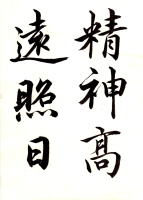 精神高
遠照日